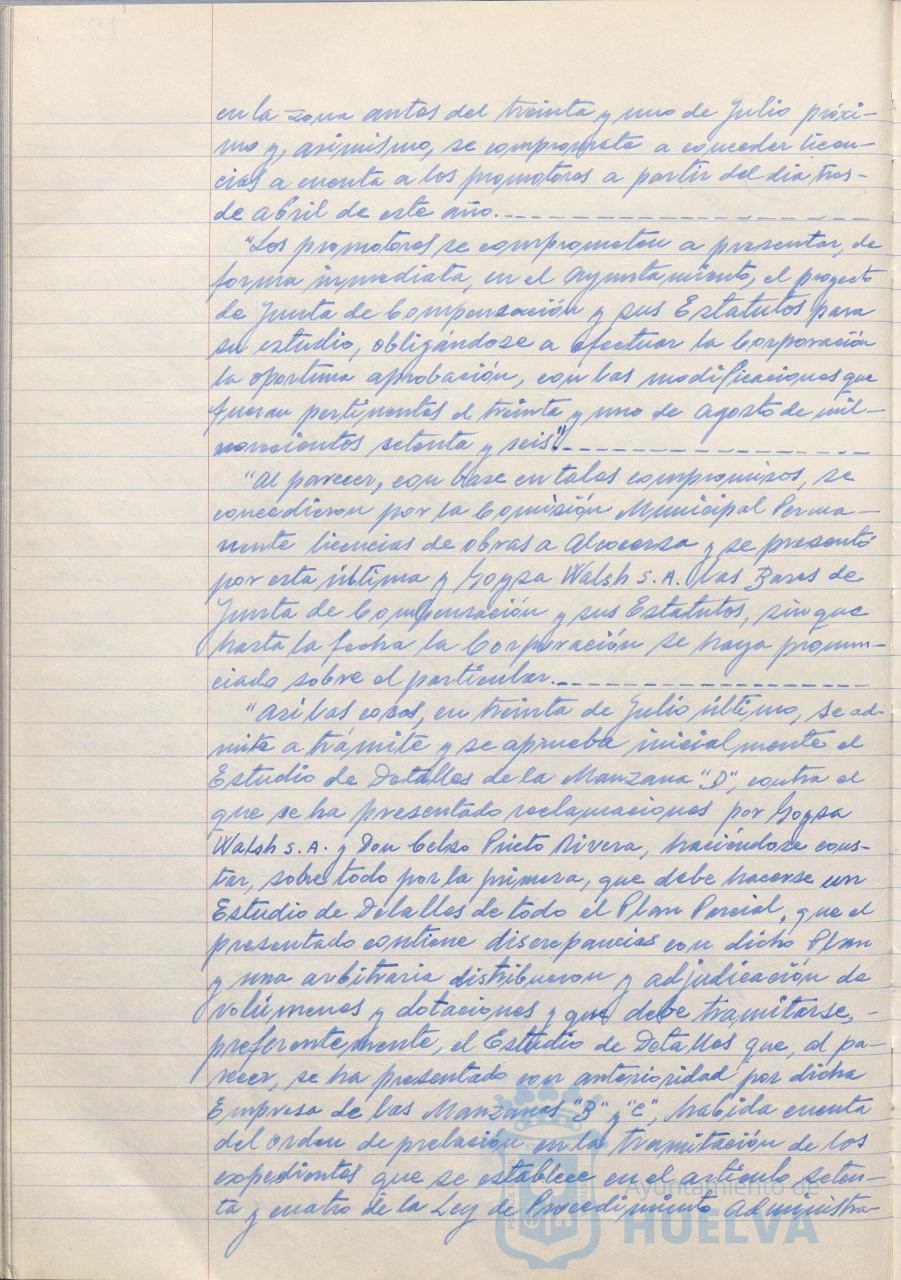 en la zona antes del treinta y uno de Julio próxi-
mo y, asimismo, se compromete a conceder licen-
cias a cuenta a los promotores a partir del día tres-
de abril de este año.
"Los promotores se comprometen a presentar, de
forma inmediata, en el Ayuntamiento, el proyecto
de Junta de Compensación y sus Estatutos para
su estudio, obligándose a efectuar la Corporación
la oportuna aprobación, con las modificaciones que
fueran pertinentes el treinta y uno de Agosto de mil-
novecientos setenta y seis".
"Al parecer, con base en tales compromisos, se
concedieron por la Comisión Municipal Perma-
nente licencias de obras a Alvocersa y se presentó
por esta última y Goysa Walsh S.A. las Bases de
Junta de Compensación y sus Estatutos, sin que
hasta la fecha la Corporación se haya pronun-
ciado sobre el particular.
"Así las cosas, en treinta de Julio último, se ad-
mite a trámite y se aprueba inicialmente el
Estudio de Detalles de la Manzana "D", contra el
que se ha presentado reclamaciones por Goysa
Walsh S.A. y Don Celso Prieto Rivera, haciéndose cons-
tar, sobre todo por la primera, que debe hacerse un
Estudio de Detalles de todo el Plan Parcial, que el
presentado contiene discrepancias con dicho Plan
y una arbitraria distribucion y adjudicación de
volúmenes y dotaciones y que debe tramitarse,-
preferentemente, el Estudio de Detalles que, al pa-
recer, se ha presentado con anterioridad por dicha
Empresa de las Manzanas "B" y "C", habida cuenta
del orden de prelación en la tramitación de los
expedientes que se establece en el artículo seten-
ta y cuatro de la Ley de Procedimiento Administra-
Ayuntamiento de
HUELVA